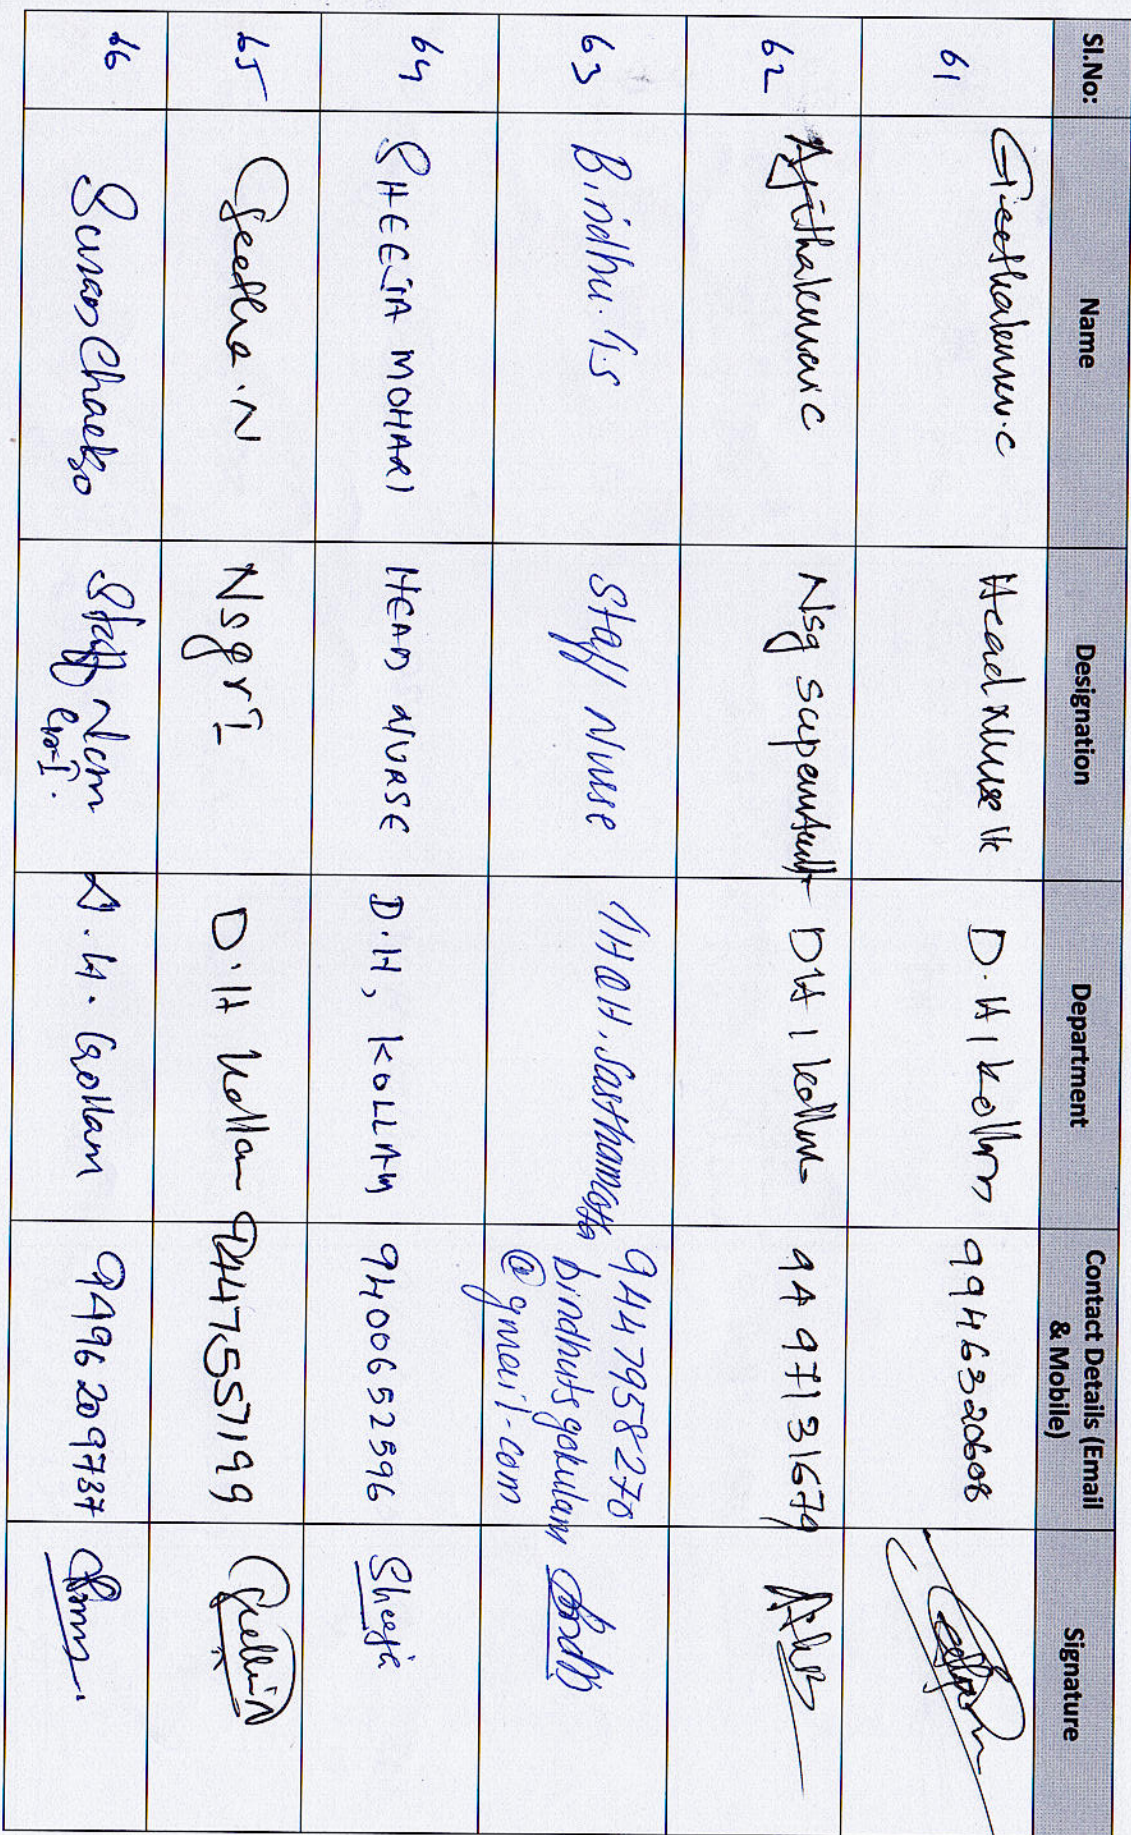 Sl.No: Name Designation Department Contact Details (Email & Mobile) Signature
61 Geethakumari.C Head Nurse D.H, Kollam 9946320608
62 Ajithakumari C Nsg Superintendent DH, Kollam 9497131679
63 Bindhu.T.S Staff Nurse THQH, Sasthamcotta 9447958270
bindhutsgokulam
@gmail.com
64 SHEEJA MOHAN HEAD NURSE D.H, KOLLAM 9400652596 Sheeja
65 Geetha.N Nsgr I D.H Kollam 9447557199
66 Chacko Staff D.H. Kollam 9496209737